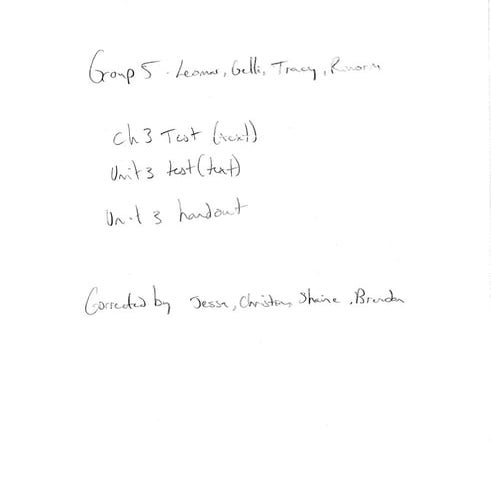 Group 5 - Leomar, Gelli, Tracy,
Ch 3 Test (text)
Unit 3 test (text)
Unit 3 handout
Corrected by Jesse, Christian, Shaine, Brendan